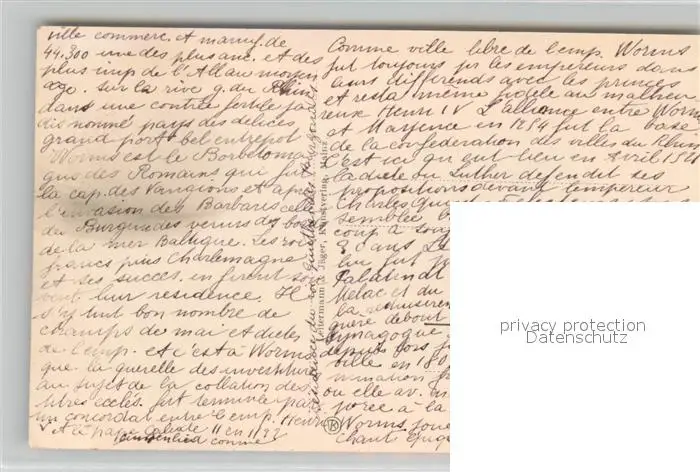 ville commerc. et manuf. de
44.300 une des plus anc. et des
plus imp de l'All au moyen
age. sur la rive g. du Rhin
dans une contre fertile ja
dis nommé pays des délices
grand port bel entrepot
Worms est le Borbetoma
gus des Romains qui fut
la cap. des Vangions et après
l'invasion des Barbares celle
des Burgundes venus des bos
de la mer Baltique. Les rois
francs puis Charlemagne
et ses succes. en firent sou
vent leur residence. Il
s'y tint bon nombre de
champs de mai et dietes
de l'emp. et c'est à Worms
que la querelle des investitures
au sujet de la collation des
titres eccles. fut terminée par
un concordat entre l'emp. Henri
V et le pape Calixte II en 1122
Comme ville libre de l'emp. Worms
fut toujours pr les empereurs dans
leurs differends avec les princes
et resta même fidele au malheu
reux Henri IV L'alliance entre Worms
et Mayence en 1254 fut la base
de la confederation des villes du Rhin
c'est ici qu eut lieu en Avril 1521
la diete ou Luther defendit ses
propositions devant l'empereur
Charles Quint
semblée
coup à
3 dans
lui fut
Palatinat
Melac et du
la
guère debout
synagogue
depuis lors
ville en 180
mination
ou elle av.
porée à la
Worms joue
chant
Kunstverlag, Mainz
privacy protection
Datenschutz